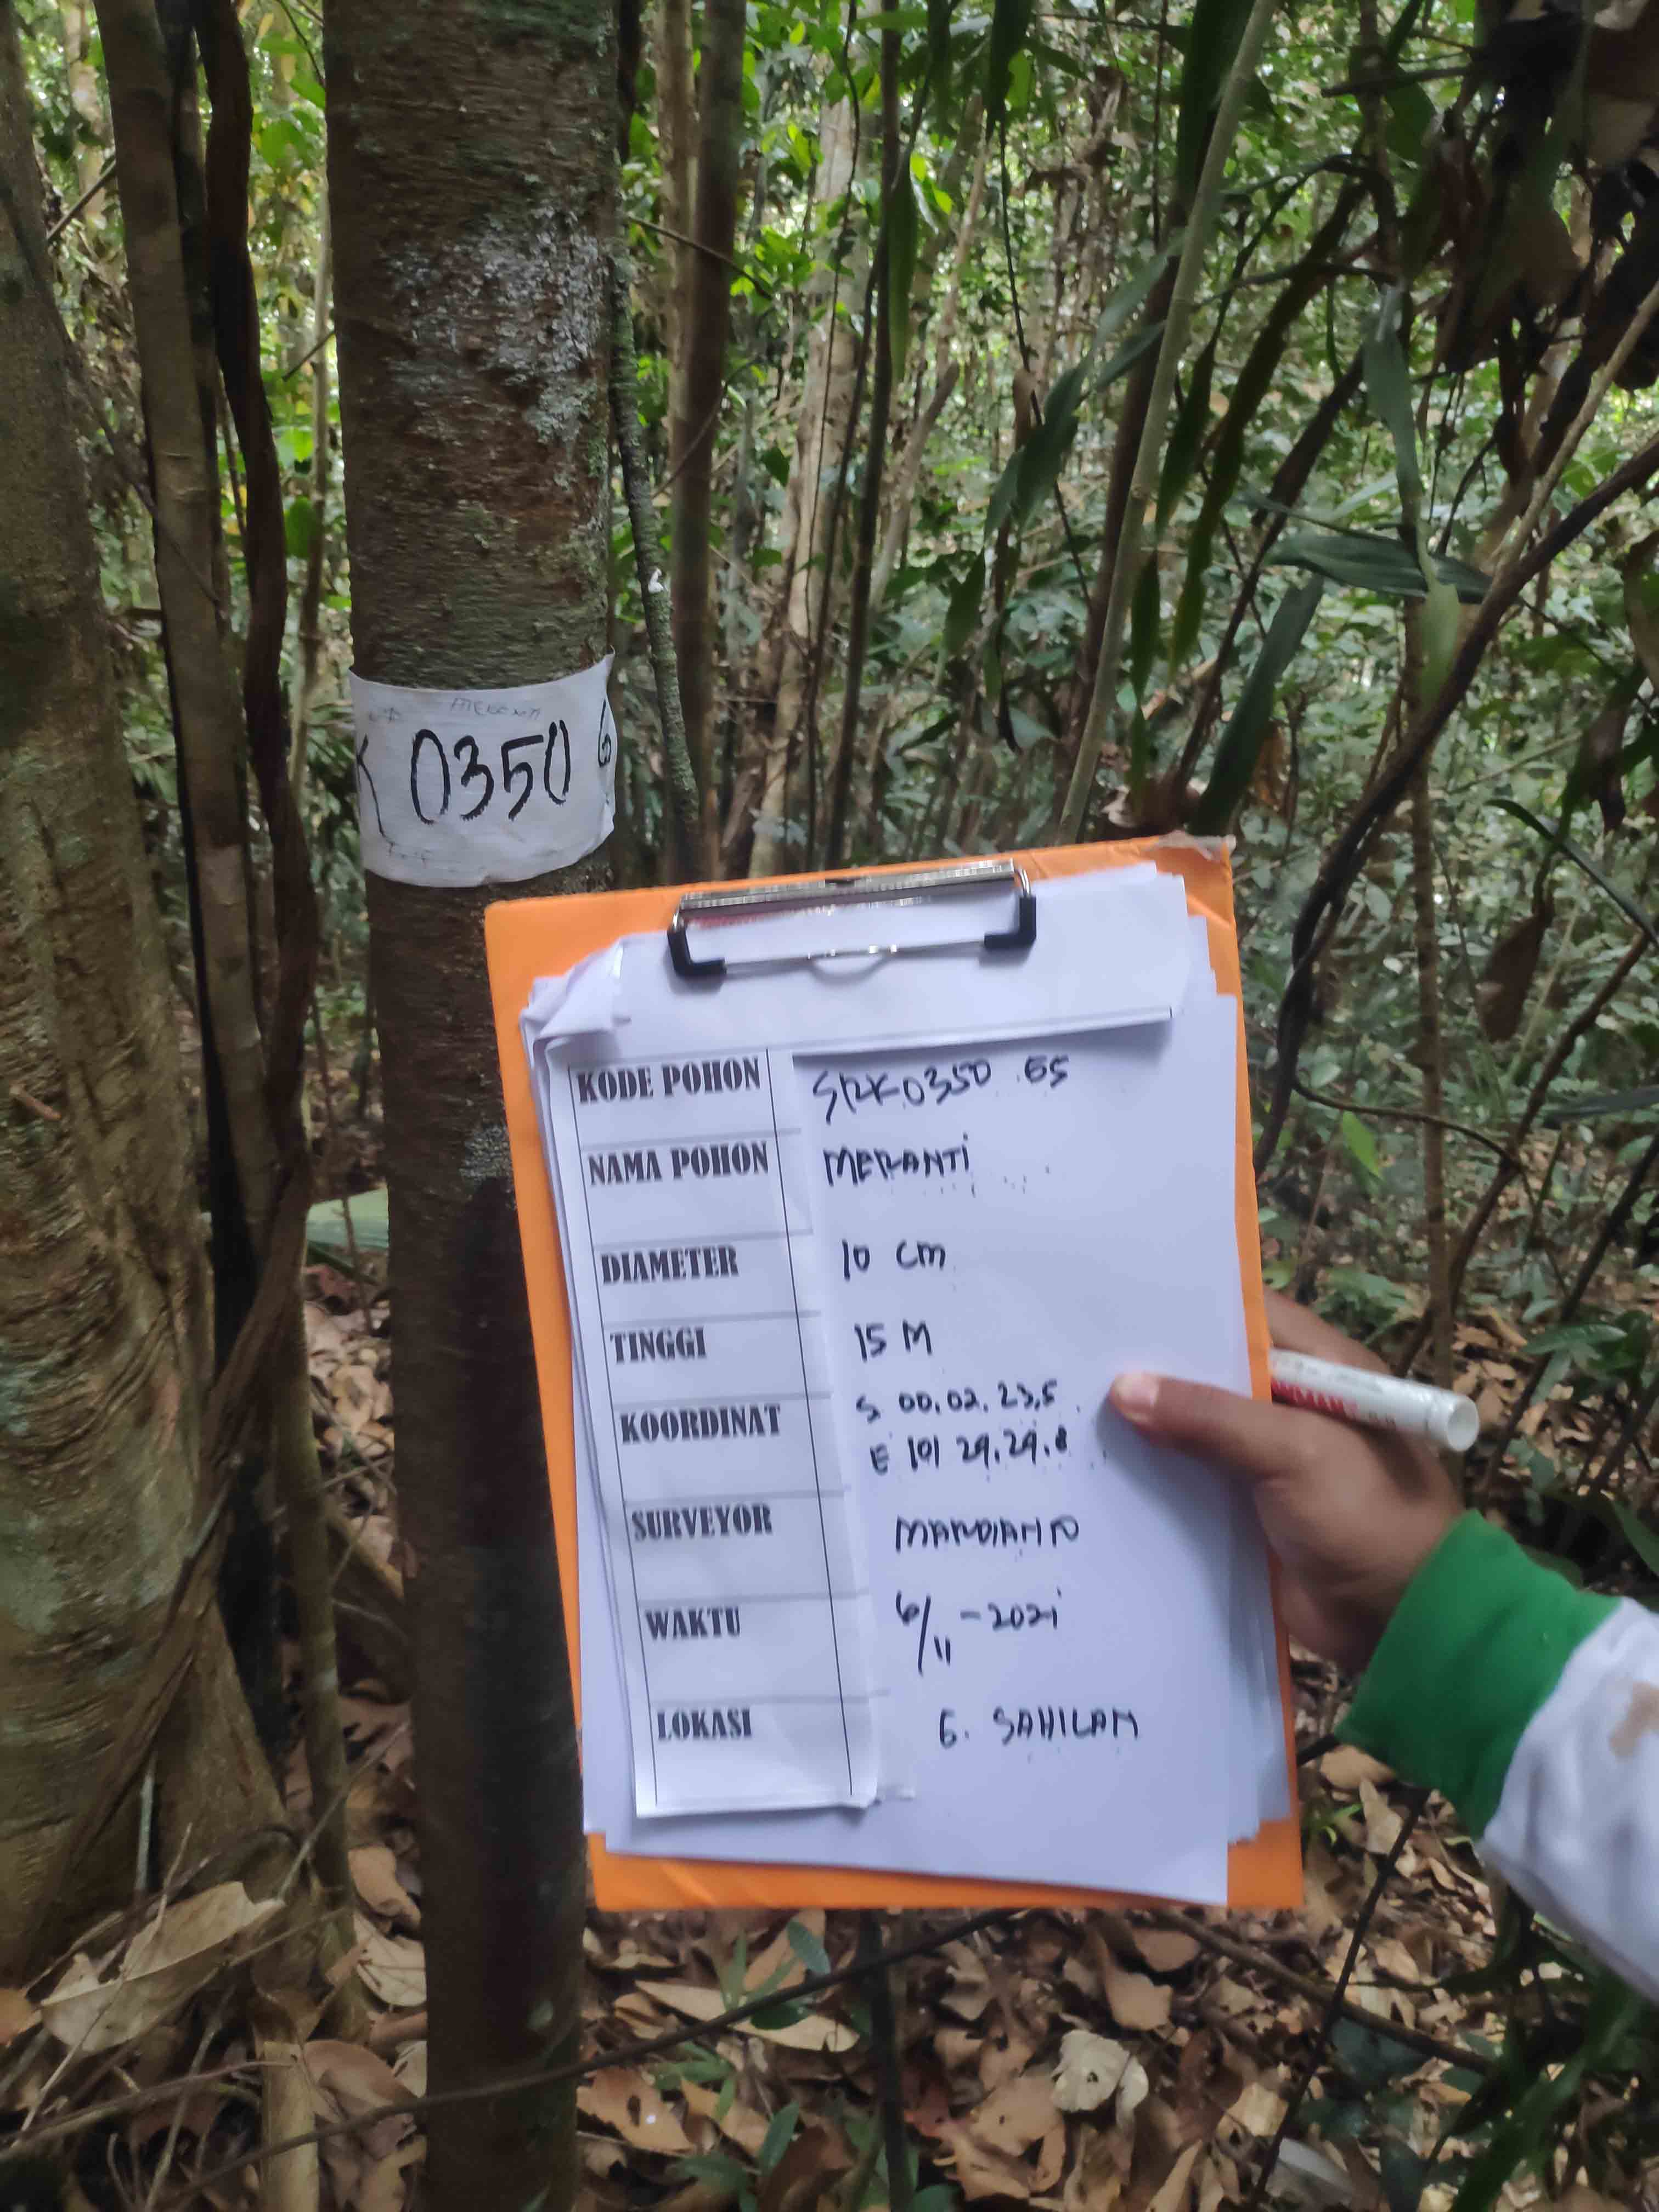 MERANTI
K 0350 G
KODE POHON SRK 0350 GS
NAMA POHON MERANTI
DIAMETER 10 cm
TINGGI 15 M
KOORDINAT S 00.02.23,5
E 101 29.29.8
SURVEYOR MARDIANTO
WAKTU 6/11 - 2021
LOKASI G. SAHILAN